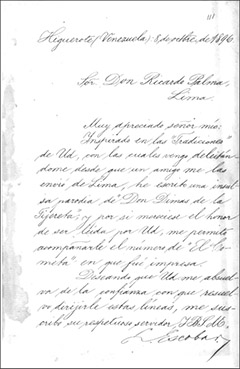 111
Higuerote (Venezuela) 8 de octbre de 1896
Sor Don Ricardo Palma,
Lima.
Muy apreciado señor mio:
Inspirado en las "Tradiciones"
de Ud, con las cuales vengo deleitán
dome desde que un amigo me las
envió de Lima, he escrito una insul
sa parodia de "Don Dimas de la
Tijereta", y por si mereciese el honor
de ser leida por Ud, me permito
acompañarle el número de "El Co-
meta" en que fué impresa.
Deseando que Ud me absuel
va de la confianza con que resuel
vo dirijirle estas líneas, me sus-
cribo su respetuoso servidor
Escobar